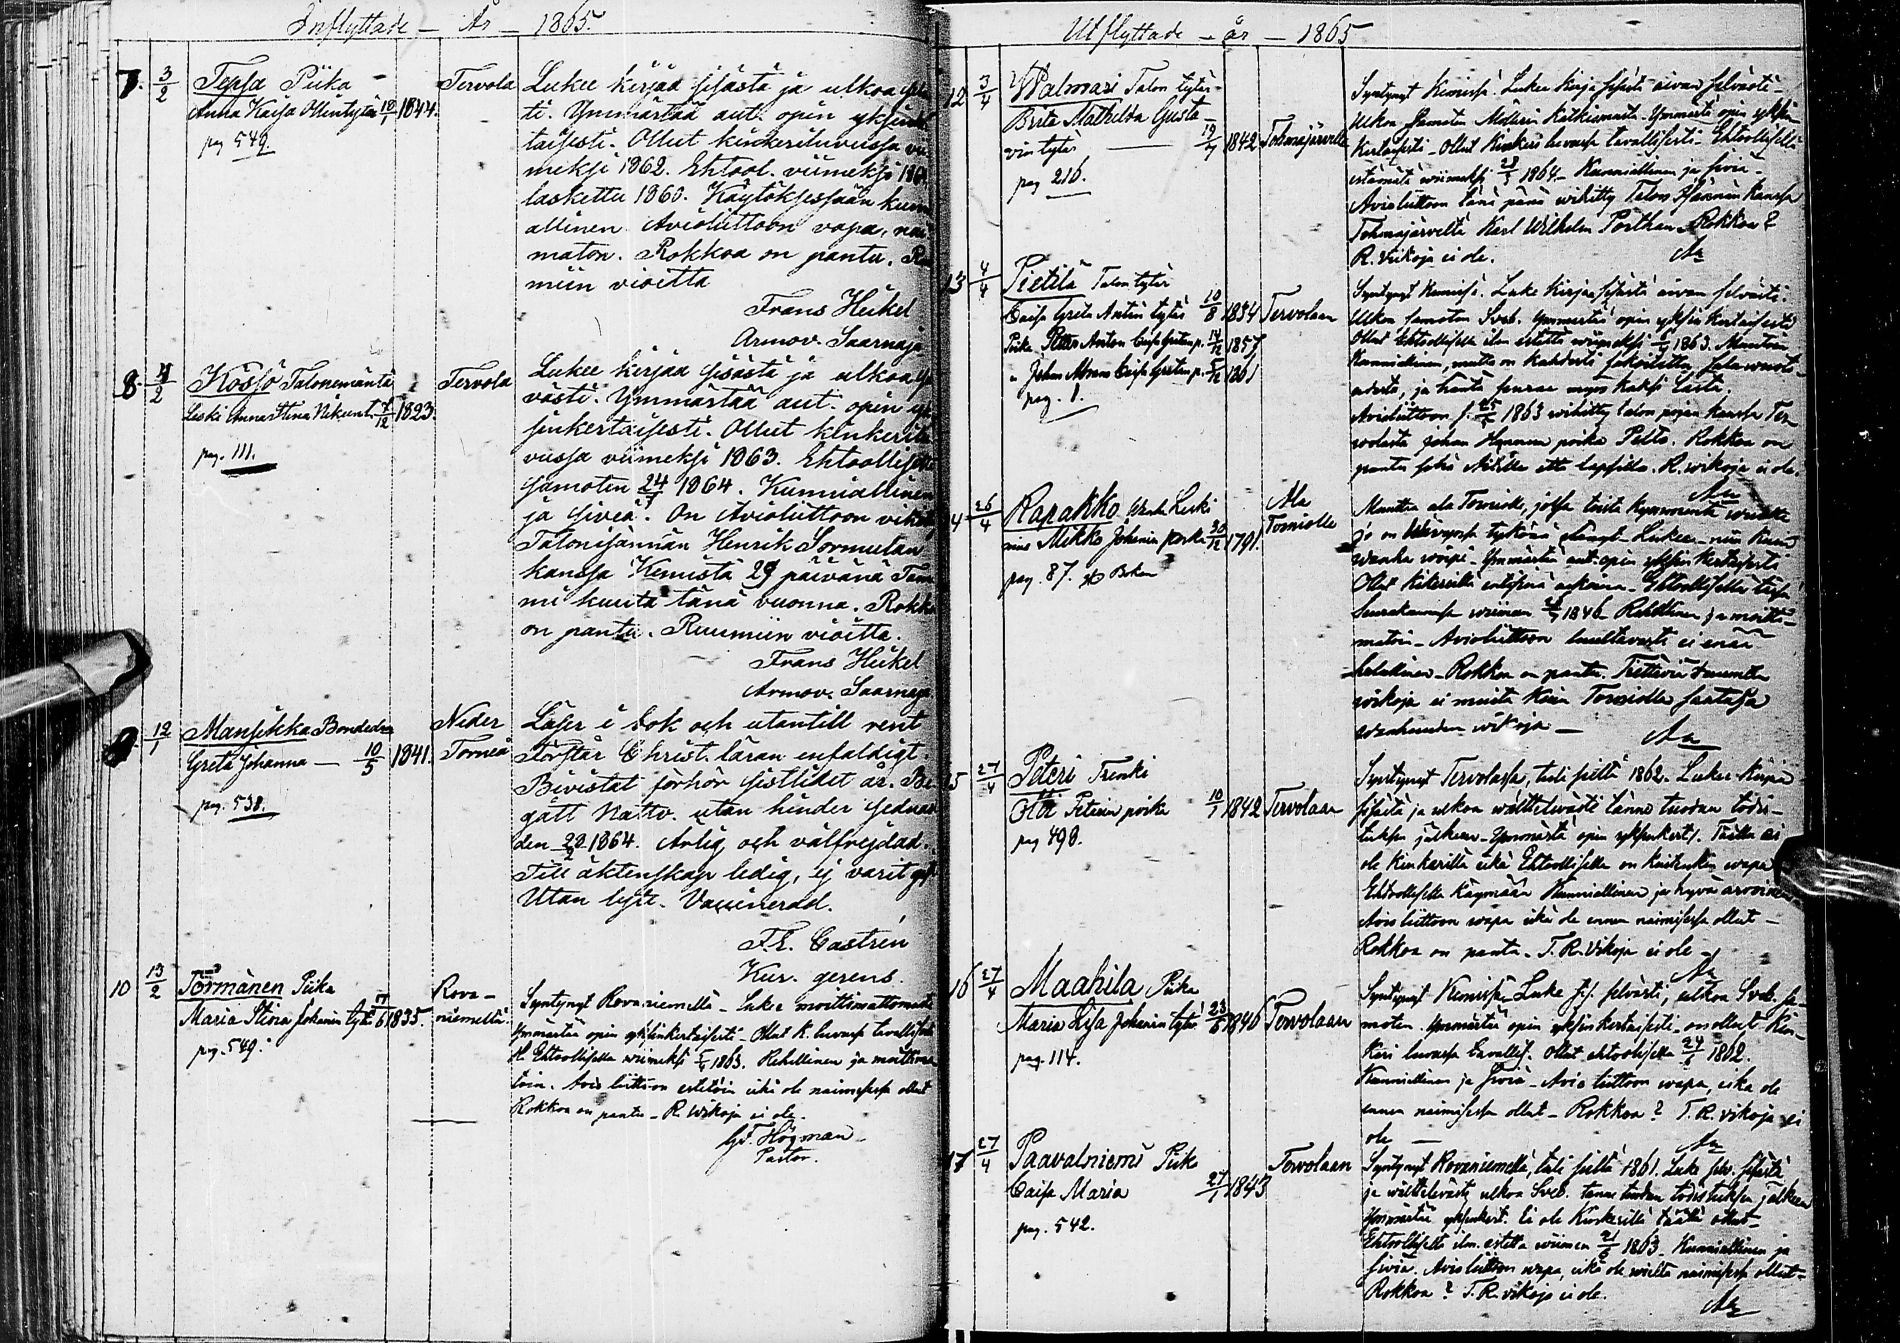 Inflyttade – År – 1865.
7. 3/2 Tepsa Piika
Anna Kaisa Ollintytär 10/1 1844.
pag 549.
Tervola
Lukee kirjaa sisästä ja ulkoa
ti. Ymmärtää aut. opin yksin
taisesti. Ollut kinkeriluvussa vii
meksi 1862. Ehtool. viimeksi
laskettu 1860. Käytöksessään kunn
allinen. Avioliittoon vapa, nai
maton. Rokkoa on pantu. Ru
miin vioitta
Frans Heikel
Armov. Saarnaja
8 4/2 Kössö Talonemäntä
Leski Anna Stina Nikunt. 4/12 1823.
pag. 111.
Tervola
Lukee kirjaa sisästä ja ulkoa
västi. Ymmärtää aut. opin y
sinkertaisesti. Ollut kinkerilu
vussa viimeksi 1863. Ehtoollisella
samoten 24/7 1864. Kunniallinen
ja siveä. On Avioliittoon vihi
Talonisännän Henrik Sormulan
kanssa Kemistä 29 päivänä Tam
mi kuuta tänä vuonna. Rokko
on pantu. Ruumiin vioitta.
Frans Heikel
Armov. Saarnaja
9. 12/1 Mansikka Bondedr
Greta Johanna — 10/5 1841.
pag. 538.
Neder
Torneå
Läser i bok och utantill rent
Förstår Christ. läran enfaldigt
Bivistat förhör sistlidet år. Be
gått Nattv. utan hinder sednast
den 28/2 1864. Ärlig och välfrejdad.
Till äktenskap ledig, ej varit gift
Utan lyte. Vaccinerad.
F. E. Castrén
Kur. gerens.
10 13/2 Törmänen Piika
Maria Stina Johanin tytär 1835.
pag. 549.
Rova–
niemeltä.
Syntynyt Rovaniemellä – Lukee moittimattomasti
Ymmärtää opin yksinkertaisesti – Ollut k. luvussa tavallisesti
H. Ehtoollisella viimeksi 1863. Rehellinen ja moittima
toin. Avio liittoon estetöin eikä ole naimisessa ollut
Rokkoa on pantu – R. vikoja ei ole.
Högman
Pastor.
Utflyttade – år – 1865
12 3/4 Walmari Talon tytär–
Brita Mathilda Gusta–
vin tytär — 19/7 1842
pag. 216.
Tohmajärvelle
Syntynyt Kemissä. Lukee kirja sisästä aivan selvästi –
Ulkoa samoten Ymmärtä opin yksin
kertaisesti – Ollut Kinkeri luvussa tavallisesti – Ehtoollisella
estämätä wiimeksi 1864 – Kunniallinen ja siviä –
Avioliittoon tänä pänä wihitty Talon Isännän kanssa
Tohmajärveltä Karl Wilhelm Porthan Rokkoa?
R. Wikoja ei ole.
13 4/4 Pietilä Talon tytär
Caisa Greta Antin tytär 10/8 1834
Poika Petter Anton Caisa Gretan p. 14/12 1857
" Johan Caisa Gretan p. 1861
pag. 1.
Tervolaan
Syntynyt Kemissä. Lukee kirjaa sisästä aivan selvästi.
Ulkoa samoten Sveb. Ymmärtää opin yksin kertaisesti
Ollut Ehtoollisella ilm estettä wiimeksi 1863. Muutoin
Kunniallinen, mutta on kahdesti
ja häntä seuraa myös kaksi lasta.
Avioliittoon 1863 wihitty talon pojan kanssa Ter
volasta Johan poika Pelto. Rokkoa on
pantu sekä Äitille että lapsille. R. wikoja ei ole.
14 26/4 Rapakko Leski
mies Mikko Johanin poika 30/12 1791.
pag. 87.
Ala
Torniolle
Muutta ala Torniolle, jossa toista kymmentä wuotta
jo on tykönä – Lukee – niin kuin
wanha Ymmärtä aut. opin yksin kertaisesta
Ollut
Seurakunnassa wiimen 1846 Rehellinen ja moitti–
matoin – Avioliittoon luultavasti ei enää
halullinen – Rokkoa on pantu.
wikoja ei muita Kuin
wanhuuden wikoja —
15 27/4 Peteri Trenki
Olli Peterin poika 10/1 1842
pag 498.
Tervolaan
Syntynyt Tervolassa, tuli sieltä 1862. Lukee Kirjaa
sisästä ja ulkoa wälttelevästi tänne tuodun todis–
tuksen jälkeen – Ymmärtä opin yksinkert. Täällä ei
ole Kinkerillä eikä Ehtoollisella on kuitenkin wapa
Ehtoollisella käymään Kunniallinen ja hyvä arvoinen
Avioliittoon wapa eikä ole ennen naimisessa ollut –
Rokkoa on pantu – T. R. Vikoja ei ole –
16 27/4 Maahila Piika
Maria Lisa Johanin tytär 23/5 1846
pag. 114.
Tervolaan
Syntynyt Kemissä Lukee s.s. selvästi, ulkoa Sveb. sa–
moten. Ymmärtää opin yksinkertaisesti – on ollut Kin–
keri luvussa tavallis. Ollut ehtoollisella 24/8 1862.
Kunniallinen ja siviä – Avio liittoon wapa eikä ole
ennen naimisessa ollut – Rokkoa? T. R. vikoja ei
ole —
17 27/4 Paavalniemi Piika
Caisa Maria 27/1 1843
pag. 542.
Tervolaan
Syntynyt Rovaniemellä, tuli sieltä 1861. Lukee selv. sisästä
ja wälttelevästi ulkoa Sveb. tänne tuodun todistuksen jälkeen
Ymmärtää yksinkert. Ei ole Kinkerillä täällä ollut –
Ehtoollisella ilm. estettä wiimen 21/6 1863. Kunniallinen ja
siviä. Avioliittoon wapa, eikä ole wielä naimisessa ollut–
Rokkoa? T. R. vikoja ei ole.